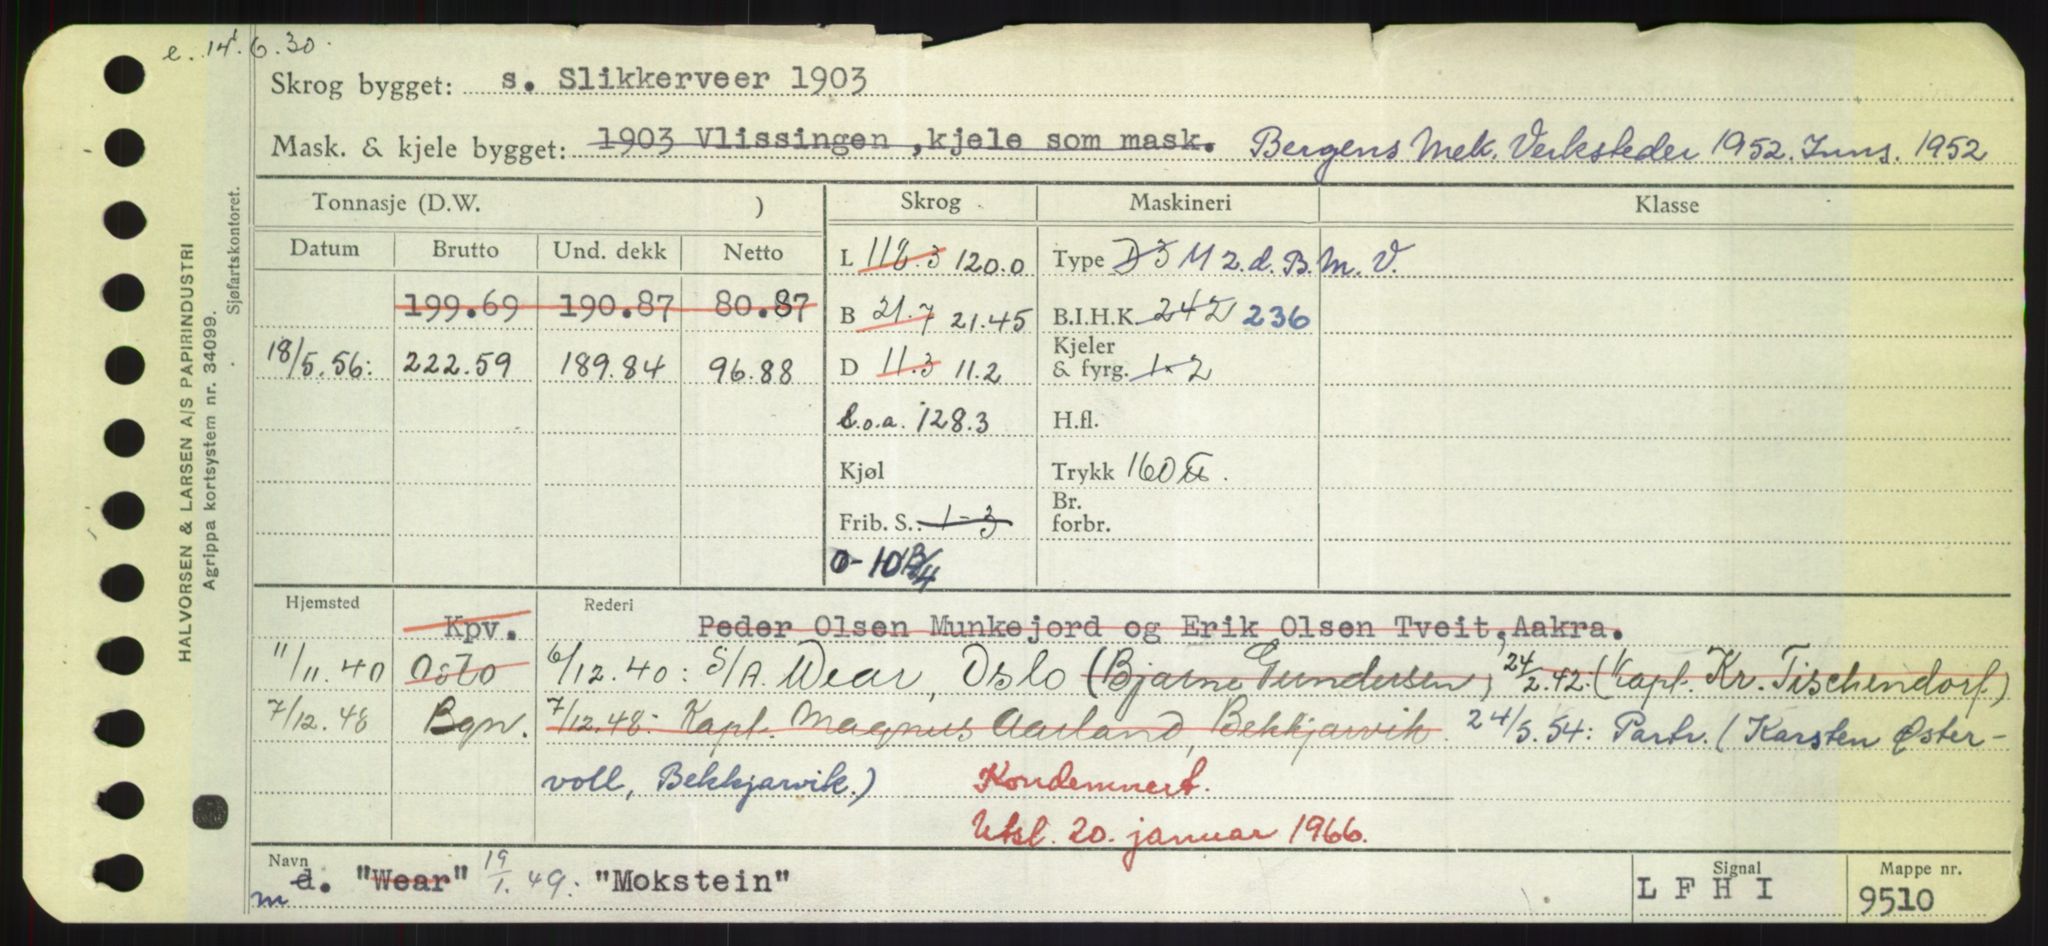 e. 14.6.30.
Skrog bygget: s. Slikkerveer 1903
Mask. & kjele bygget: 1903 Vlissingen, kjele som mask. Bergens Mek. Verksteder 1952. Inns. 1952
Tonnasje (D.W. ) Skrog Maskineri Klasse
Datum Brutto Und. dekk Netto L 118.3 120.0 Type D3 M 2.d. B.M.V.
199.69 190.87 80.87 B 21.7 21.45 B.I.H.K. 242 236
18/5.56: 222.59 189.84 96.88 D 11.3 11.2 Kjeler & fyrg. 1-2
L.o.a. 128.3 H.fl.
Kjøl Trykk 160 ℔.
Frib. S.: 1-3 Br. forbr.
0-10
Hjemsted Rederi
Kpv. Peder Olsen Munkejord og Erik Olsen Tveit, Aakra.
11/11.40 Oslo 6/12.40: S/A. Wear, Oslo (Bjarne Gundersen, 24/2.42. (Kapt. Kr. Tischendorf)
7/12.48 Bgn. 7/12.48: Kapt. Magnus Aarland, Bekkjarvik. 24/5.54: Partr. (Karsten Øster-
voll, Bekkjarvik.) Kondemnert.
Utsl. 20. januar 1966.
Navn Signal Mappe nr.
d. "Wear" 19/1.49: "Mokstein" L F H I 9510
m
HALVORSEN & LARSEN A/S PAPIRINDUSTRI
Agrippa kortsystem nr. 34099.
Sjøfartskontoret.